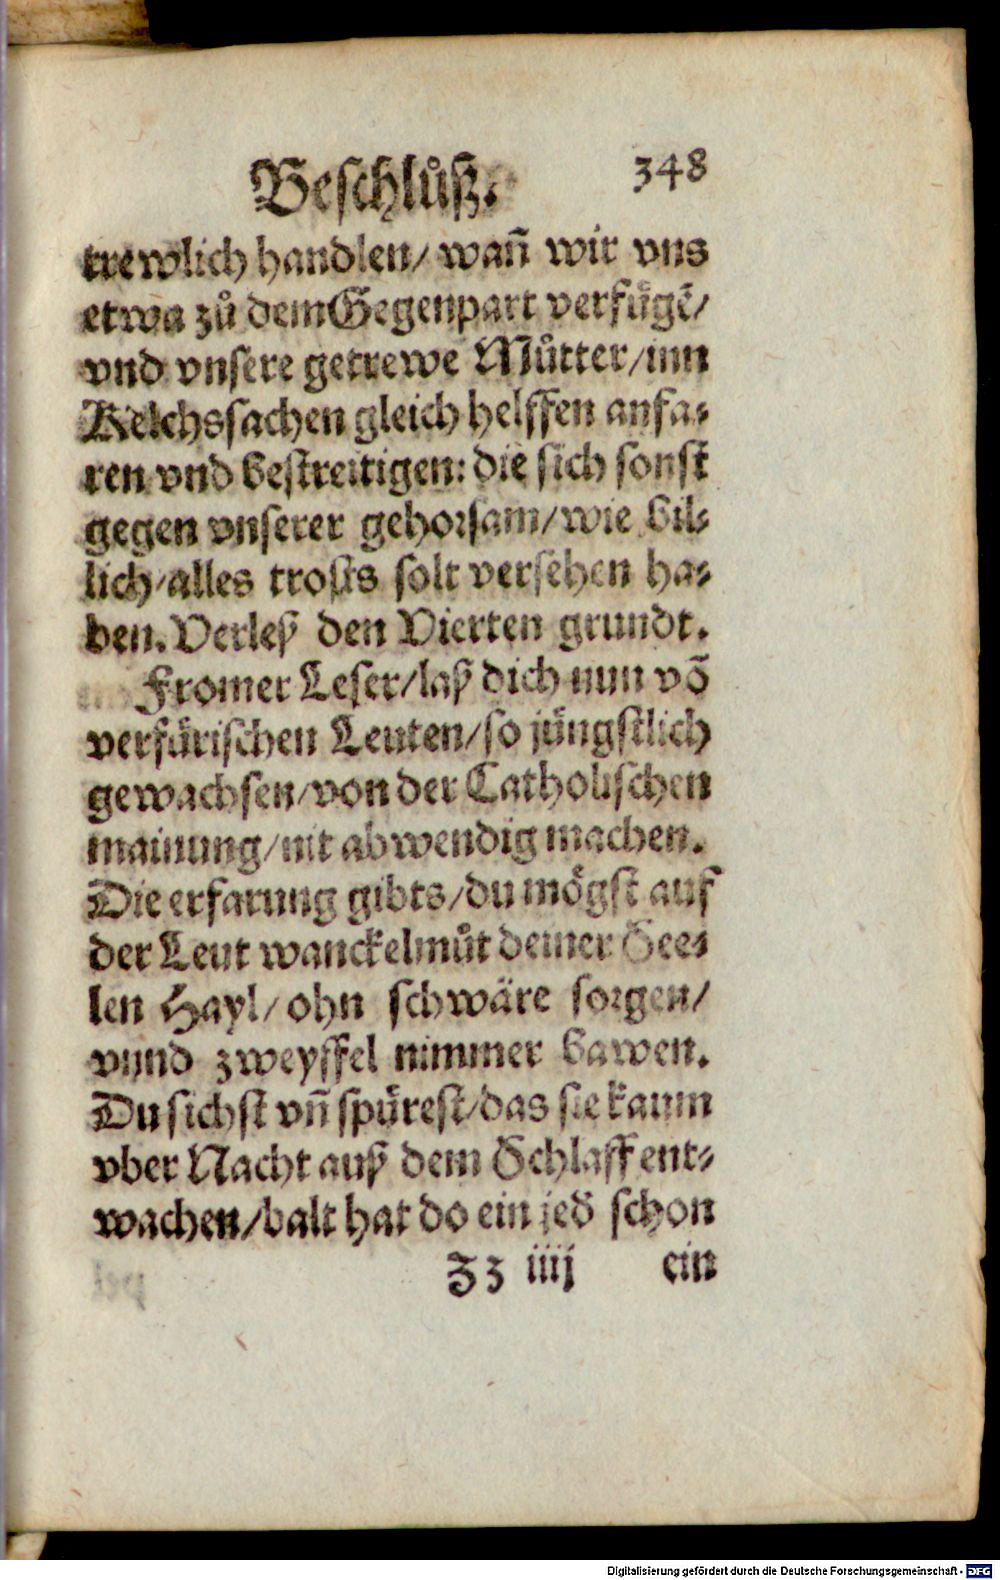 Beschlůß. 348
trewlich handlen/ wañ wir vns
etwa zů dem Gegenpart verfuͤgē/
vnd vnsere getrewe Můtter/inn
Kelchssachen gleich helffen anfa-
ren vnd bestreitigen: die sich sonst
gegen vnserer gehorsam/wie bil-
lich/alles trosts solt versehen ha-
ben. Verleß den Vierten grundt.
Fromer Leser/laß dich nun võ
verfuͤrischen Leuten/so juͤngstlich
gewachsen/von der Catholischen
mainung/nit abwendig machen.
Die erfarung gibts/du moͤgst auf
der Leut wanckelmůt deiner See-
len Hayl/ ohn schwaͤre sorgen/
vnnd zweyffel nimmer bawen.
Du sichst vñ spuͤrest/das sie kaum
vber Nacht auß dem Schlaff ent-
wachen/balt hat do ein jed schon
Zz iiij ein
Digitalisierung gefördert durch die Deutsche Forschungsgemeinschaft - DFG